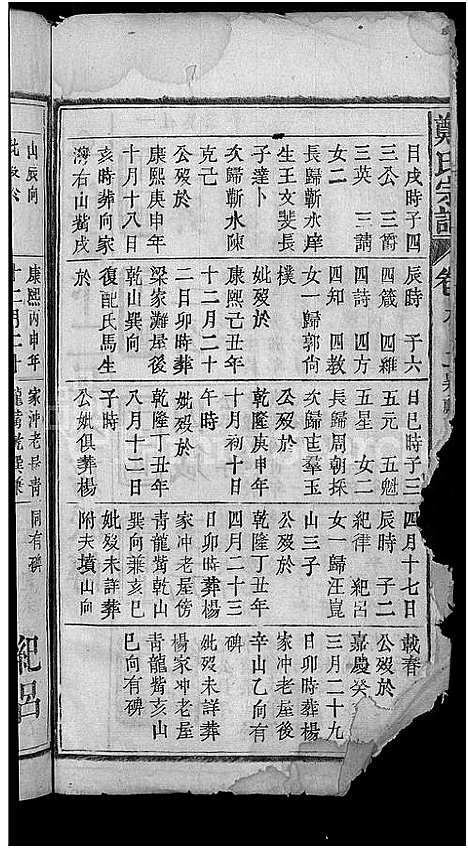 鄭氏宗譜
卷
日戌時子四
三公　三爵
三英　三請
女二
長歸蘄水庠
生王文斐長
子達卜
次歸蘄水陳
克己
公歿於
康熙庚申年
十月十八日
亥時葬向家
灣右山觜戌
辰時　子六
四箴　四維
四詩　四方
四知　四教
女一歸郭尙
樸
妣歿於
康熙己丑年
十二月二十
二日卯時葬
梁家灘屋後
乾山巽向
復配氏馬生
於
日巳時子三
五元　五魁
五星　女二
長歸周朝採
次歸芭羣玉
公歿於
乾隆庚申年
十月初十日
午時
妣歿於
乾隆丁丑年
八月十二日
子時
公妣俱葬楊
四月十七日
辰時　子二
紀律　紀呂
女一歸汪崑
山三子
公歿於
乾隆丁丑年
四月二十三
日卯時葬楊
家冲老屋傍
靑龍觜乾山
巽向兼亥巳
妣歿未詳葬
附夫墳山向
載春
公歿於
嘉慶癸
三月二十九
日卯時葬楊
家冲老屋後
辛山乙向有
碑
妣歿未詳葬
楊家冲老屋
靑龍觜亥山
巳向有碑
山辰向
康熙丙申年
十二月二十
家冲老屋靑
龍觜乾巽兼
同有碑
紀呂